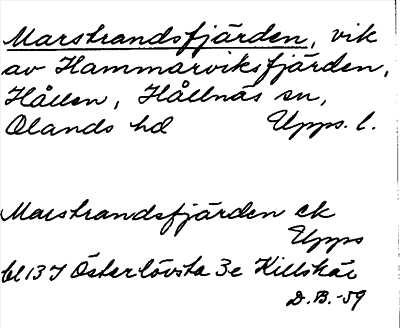 Marstrandsfjärden, vik
av Hammarviksfjärden,
Hållen, Hållnäs sn,
Olands hd Upps. l.
Marstrandsfjärden ek
Upps
bl 13 I Österlövsta 3e Killskär
D.B.-59